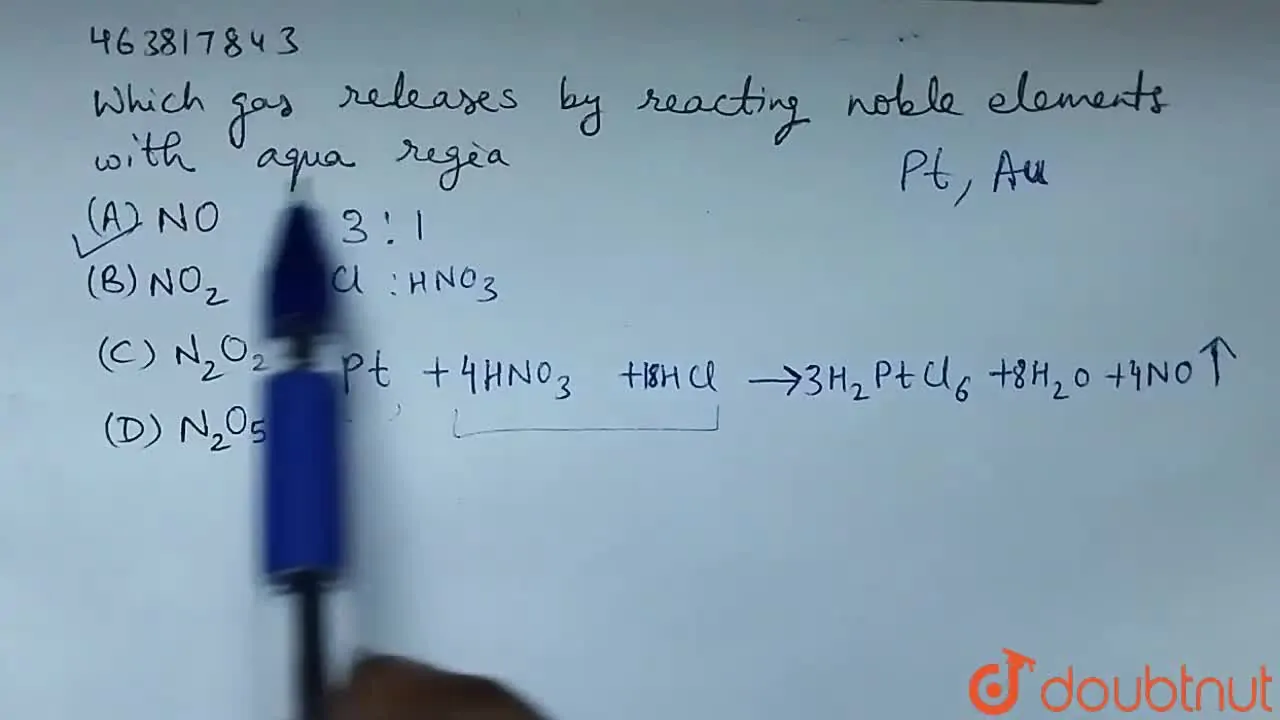 463817843
Which gas releases by reacting noble elements
with aqua regia
Pt, Au
(A) NO
3 : 1
(B) NO2
Cl : HNO3
(C) N2O2
Pt + 4HNO3 + 18HCl → 3H2PtCl6 + 8H2O + 4NO ↑
(D) N2O5
doubtnut